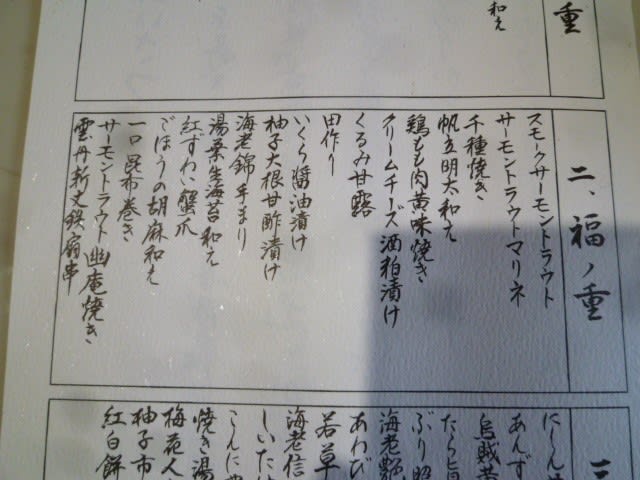 重
和え
二、福ノ重
スモークサーモントラウト
サーモントラウトマリネ
千種焼き
帆立明太和え
鶏もも肉黄味焼き
クリームチーズ酒粕漬け
くるみ甘露
田作り
いくら醤油漬け
柚子大根甘酢漬け
海老錦手まり
湯葉生海苔和え
紅ずわい蟹爪
ごぼうの胡麻和え
一口昆布巻き
サーモントラウト幽庵焼き
雲丹新丈鉄扇串
三
にしん
あんず
烏賊黄
たら旨
ぶり照
海老艶
あわび
若草
海老信
しいた
こんに
焼き湯
梅花人
柚子市
紅白餅